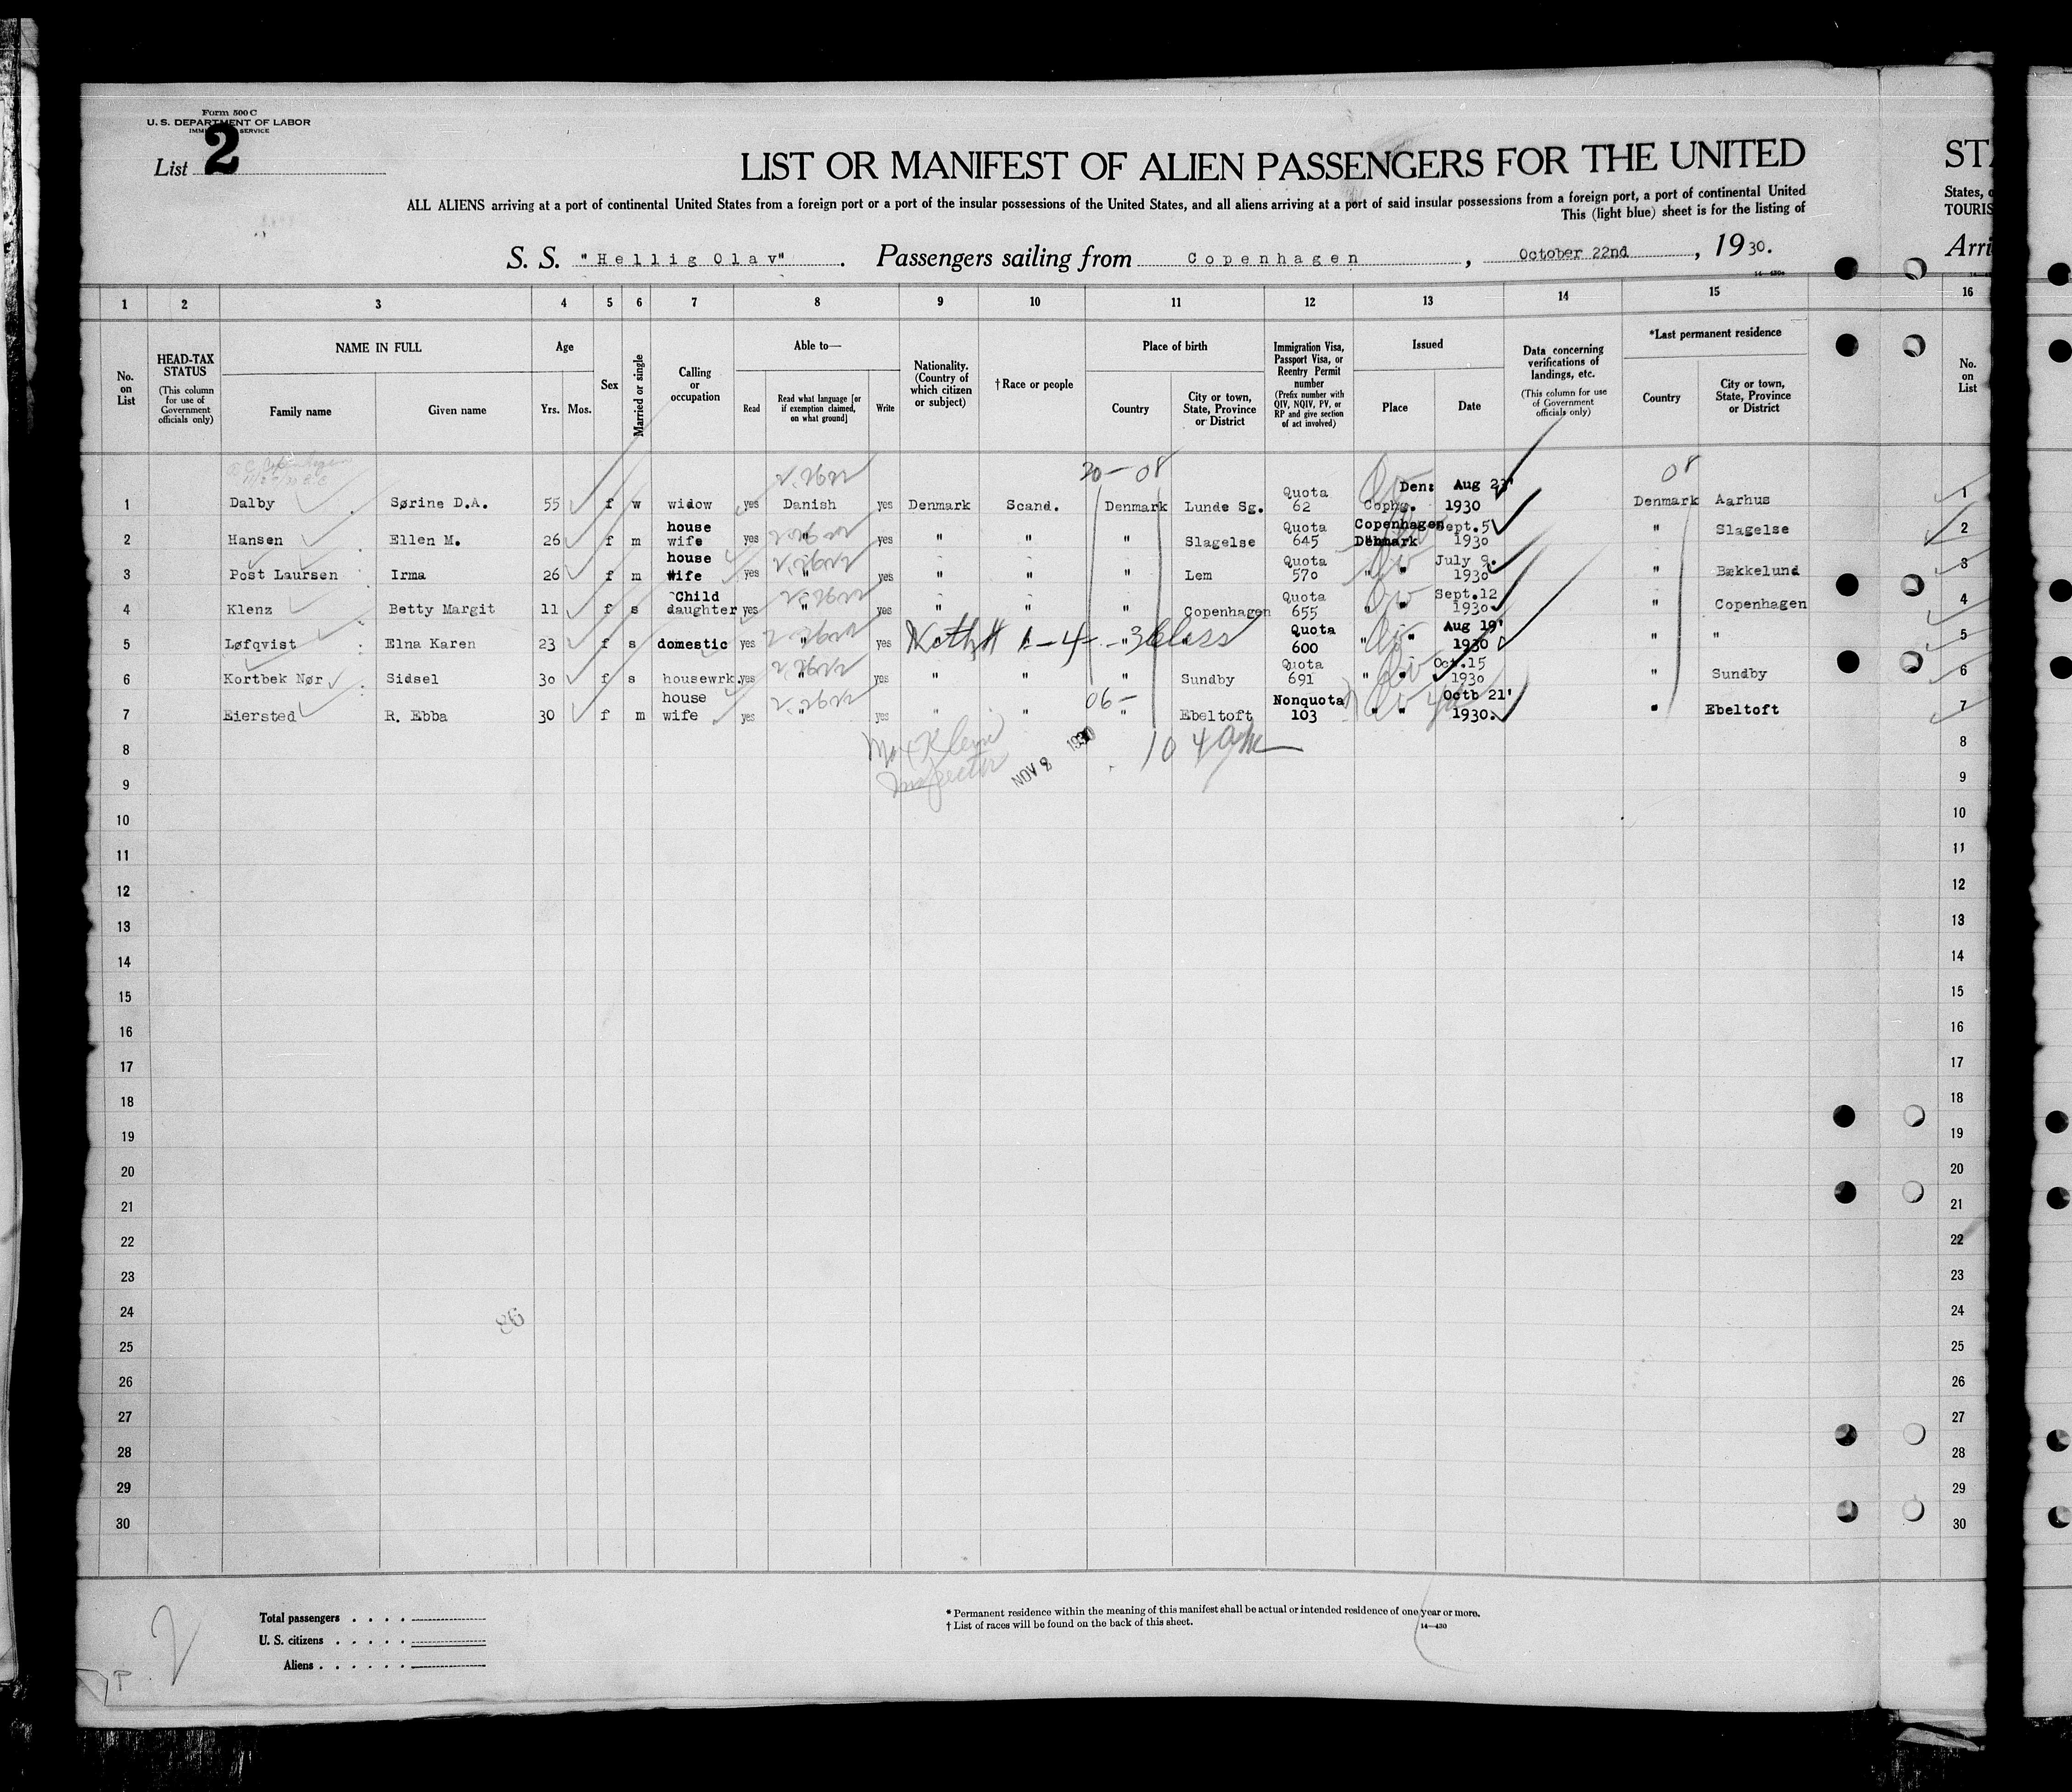 Form 500 C
U. S. DEPARTMENT OF LABOR
SERVICE
List 2
LIST OR MANIFEST OF ALIEN PASSENGERS FOR THE UNITED
ST
ALL ALIENS arriving at a port of continental United States from a foreign port or a part of the insular possessions of the United States, and all aliens arriving at a port of said insular possessions from a foreign port, a port of continental United
States,
This (light blue) sheet is for the listing of
TOURIS
S. S. "Hellig Olav" . Passengers sailing from Copenhagen , October 22nd , 1930.
Arri
14—430a
1 2 3 4 5 6 7 8 9 10 11 12 13 14 15 16
No. on List
HEAD-TAX STATUS (This column for use of Government officials only)
NAME IN FULL
Family name Given name
Age
Yrs. Mos.
Sex
Married or single
Calling or occupation
Able to—
Read Read what language [or if exemption claimed, on what ground] Write
Nationality. (Country of which citizen or subject)
†Race or people
Place of birth
Country City or town, State, Province or District
Immigration Visa, Passport Visa, or Reentry Permit number (Prefix number with QIV, NQIV, PV, or RP and give section of act involved)
Issued
Place Date
Data concerning verifications of landings, etc. (This column for use of Government officials only)
*Last permanent residence
Country City or town, State, Province or District
No. on List
20— 08 08
1 Dalby Sørine D.A. 55 f w widow yes Danish yes Denmark Scand. Denmark Lunde Sg. Quota 62 Den: Cophg. Aug 23' 1930 Denmark Aarhus 1
2 Hansen Ellen M. 26 f m house wife yes " yes " " " Slagelse Quota 645 Copenhagen Denmark Sept. 5 1930 " Slagelse 2
3 Post Laursen Irma 26 f m house wife yes " yes " " " Lem Quota 570 " " July 9. 1930 " Bækkelund 3
4 Klenz Betty Margit 11 f s Child daughter yes " yes " " " Copenhagen Quota 655 " " Sept.12 1930 " Copenhagen 4
5 Løfqvist Elna Karen 23 f s domestic yes " yes " " Quota 600 " " Aug 19' 1930 " " 5
1—4— 3 Class
6 Kortbek Nør Sidsel 30 f s housewrk. yes " yes " " " Sundby Quota 691 " " Oct.15 1930 " Sundby 6
06—
7 Eiersted R. Ebba 30 f m house wife yes " yes " " " Ebeltoft Nonquota 103 " " Octb 21' 1930. " Ebeltoft 7
Max Klein
Inspector
NOV 8 1930
10 4
8 8
9 9
10 10
11 11
12 12
13 13
14 14
15 15
16 16
17 17
18 18
19 19
20 20
21 21
22 22
23 23
24 24
86
25 25
26 26
27 27
28 28
29 29
30 30
Total passengers . . . .
U. S. citizens . . . . .
Aliens . . . . . .
* Permanent residence within the meaning of this manifest shall be actual or intended residence of one year or more.
† List of races will be found on the back of this sheet.
14—430
2